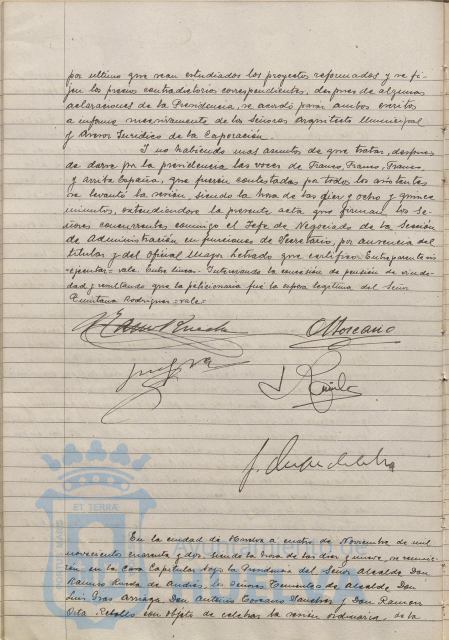 por ultimo que sean estudiados los proyectos reformados y se fi-
jen los precios contradictorios correspondientes, despues de algunas
aclaraciones de la Presidencia, se acordó pasen ambos escritos
a informe nuevamente de los Señores Arquitecto Municipal
y Asesor Juridico de la Corporación.
Y no habiendo mas asuntos de que tratar, despues
de darse por la presidencia las voces de Franco, Franco, Franco
y arriba España, que fueron contestadas por todos los asistentes
se levantó la sesión, siendo la hora de las diez y ocho y quince
minutos, extendiendose la presente acta que firman los Se-
ñores concurrentes conmigo el Jefe de Negociado de la Sección
de Administración en funciones de Secretario, por ausencia del
titular y del oficial Mayor Letrado que certifico. Entreparentesis
=ejecutar= vale. Entre lineas: Interesando la concesión de pensión de viude-
dad y resultando que la peticionaria fué la esposa legitima del Señor
Quintana Rodriguez =vale=
ET TERRA
En la ciudad de Huelva a cuatro de Noviembre de mil
novecientos cuarenta y dos, siendo la hora de las diez y nueve, se reunie-
ron en la Casa Capitular bajo la Presidencia del Señor Alcalde Don
Ramiro de Andrés, los Señores Tenientes de Alcalde Don
Luis Don Antonio Toscano Sanchez y Don Ramon
Rebollo con objeto de celebrar la sesión ordinaria,